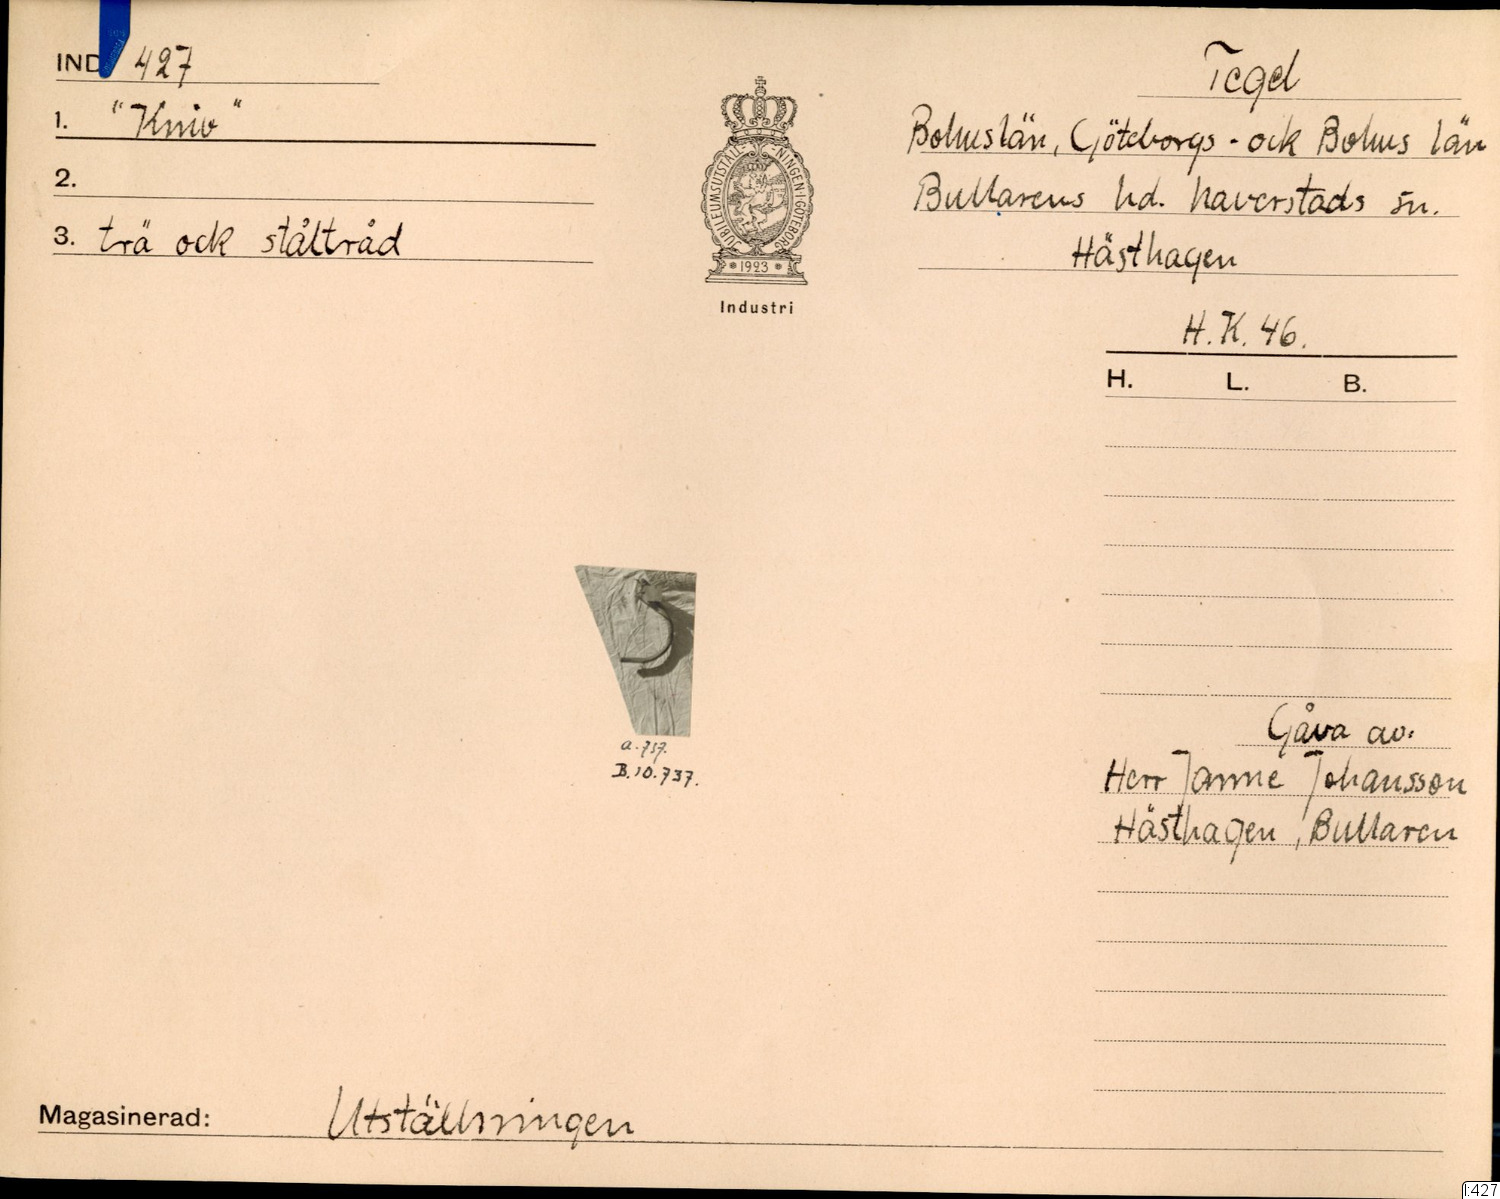 IND 427
1. "Kniv"
2.
3. trä ock ståltråd
JUBILEUMSUTSTÄLLNINGEN I GÖTEBORG
1923
Industri
Tegel
Bohuslän, Göteborgs- ock Bohus län
Bullarens hd. Naverstads sn.
Hästhagen
H.K. 46.
H. L. B.
a.757.
B.10.737.
Gåva av:
Herr Janne Johansson
Hästhagen, Bullaren
Magasinerad: Utställningen
I:427